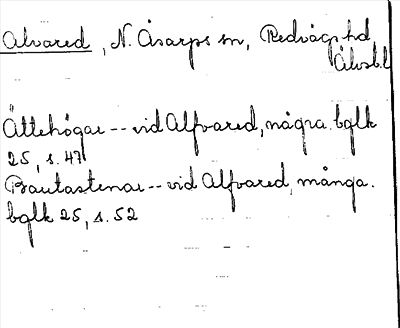 Alvared, N. Åsarps sn, Redvägs hd
Älvsb.l
Ättehögar -- vid Alfvared, några. bglk
25, s. 47
Bautastenar -- vid Alfvared, många.
bglk 25, s. 52